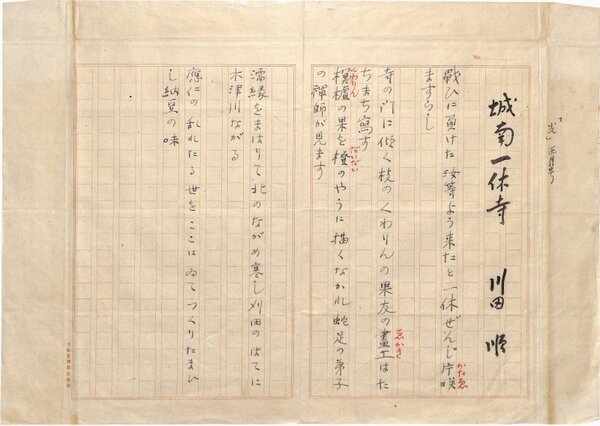 光」正月号
No.
城南一休寺　川田順
戰ひに負けた汝等よう来たと一休ぜんじ片咲
かたゑ
ますらし
寺の門に傾く枝のくわりんの果友の畫工はた
ゑかき
ちまち寫す
榠樝の果を橙のやうに描くなかれ蛇足の弟子
くわりん
だいだい
の禅師が見ます
濡縁をまはりて北のながめ寒し刈田のはてに
木津川ながる
應仁の乱れたる世をここにゐてつくりたまひ
し納豆の味